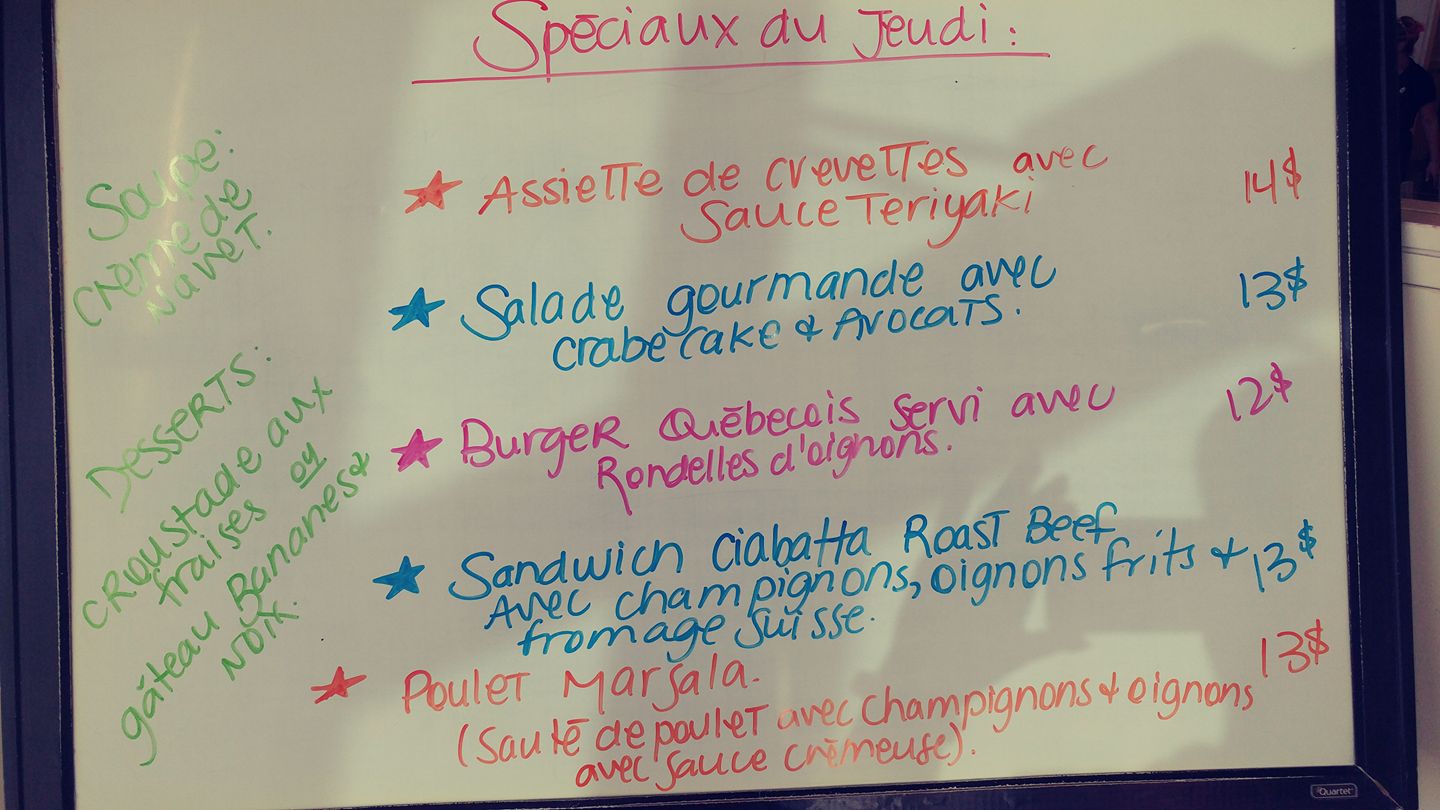 Spéciaux du Jeudi :
Soupe:
Crème de
navet.
Desserts:
Croustade aux
fraises ou
gâteau Bananes &
noix.
★ Assiette de crevettes avec 14$
Sauce Teriyaki
★ Salade gourmande avec 13$
crabe cake & Avocats.
★ Burger Québecois servi avec 12$
Rondelles d'oignons.
★ Sandwich Ciabatta Roast Beef
Avec champignons, oignons frits & 13$
fromage suisse.
★ Poulet Marsala. 13$
(Sauté de poulet avec champignons & oignons
avec sauce crèmeuse).
Quartet